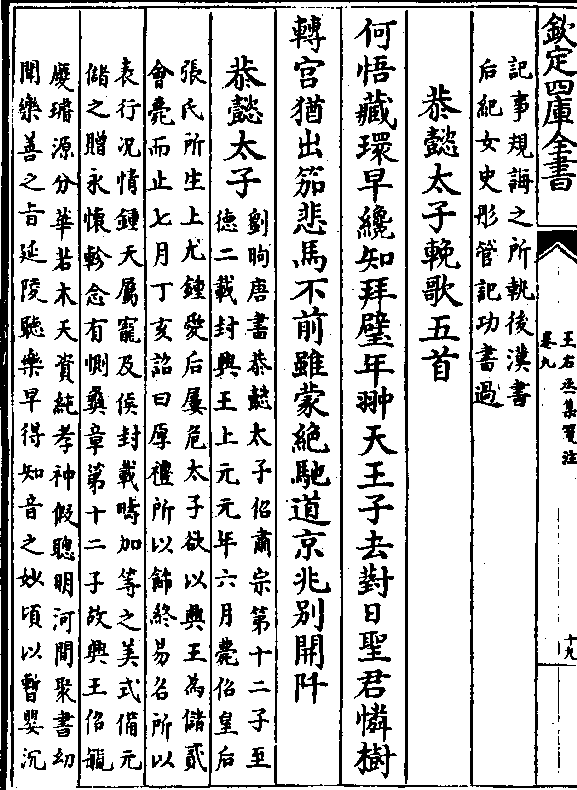 欽定四庫全書
王右丞集箋注
卷九
十九
記事規誨之所執後漢書
后紀女史彤管記功書過
恭懿太子輓歌五首
何悟藏環早纔知拜璧年翀天王子去對日聖君憐樹
轉宮猶出笳悲馬不前雖蒙絶馳道京兆别開阡
恭懿太子
劉昫唐書恭懿太子佋肅宗第十二子至
德二載封興王上元元年六月薨佋皇后
張氏所生上尤鍾愛后屢危太子欲以興王為儲貳
會薨而止七月丁亥詔曰厚禮所以飾終易名所以
表行况情鍾天屬寵及侯封載畴加等之美式備元
儲之贈永懷軫念有惻彝章第十二子故興王佋毓
慶璿源分華若木天資純孝神假聰明河間聚書幼
聞樂善之旨延陵聽樂早得知音之妙頃以暫嬰沉